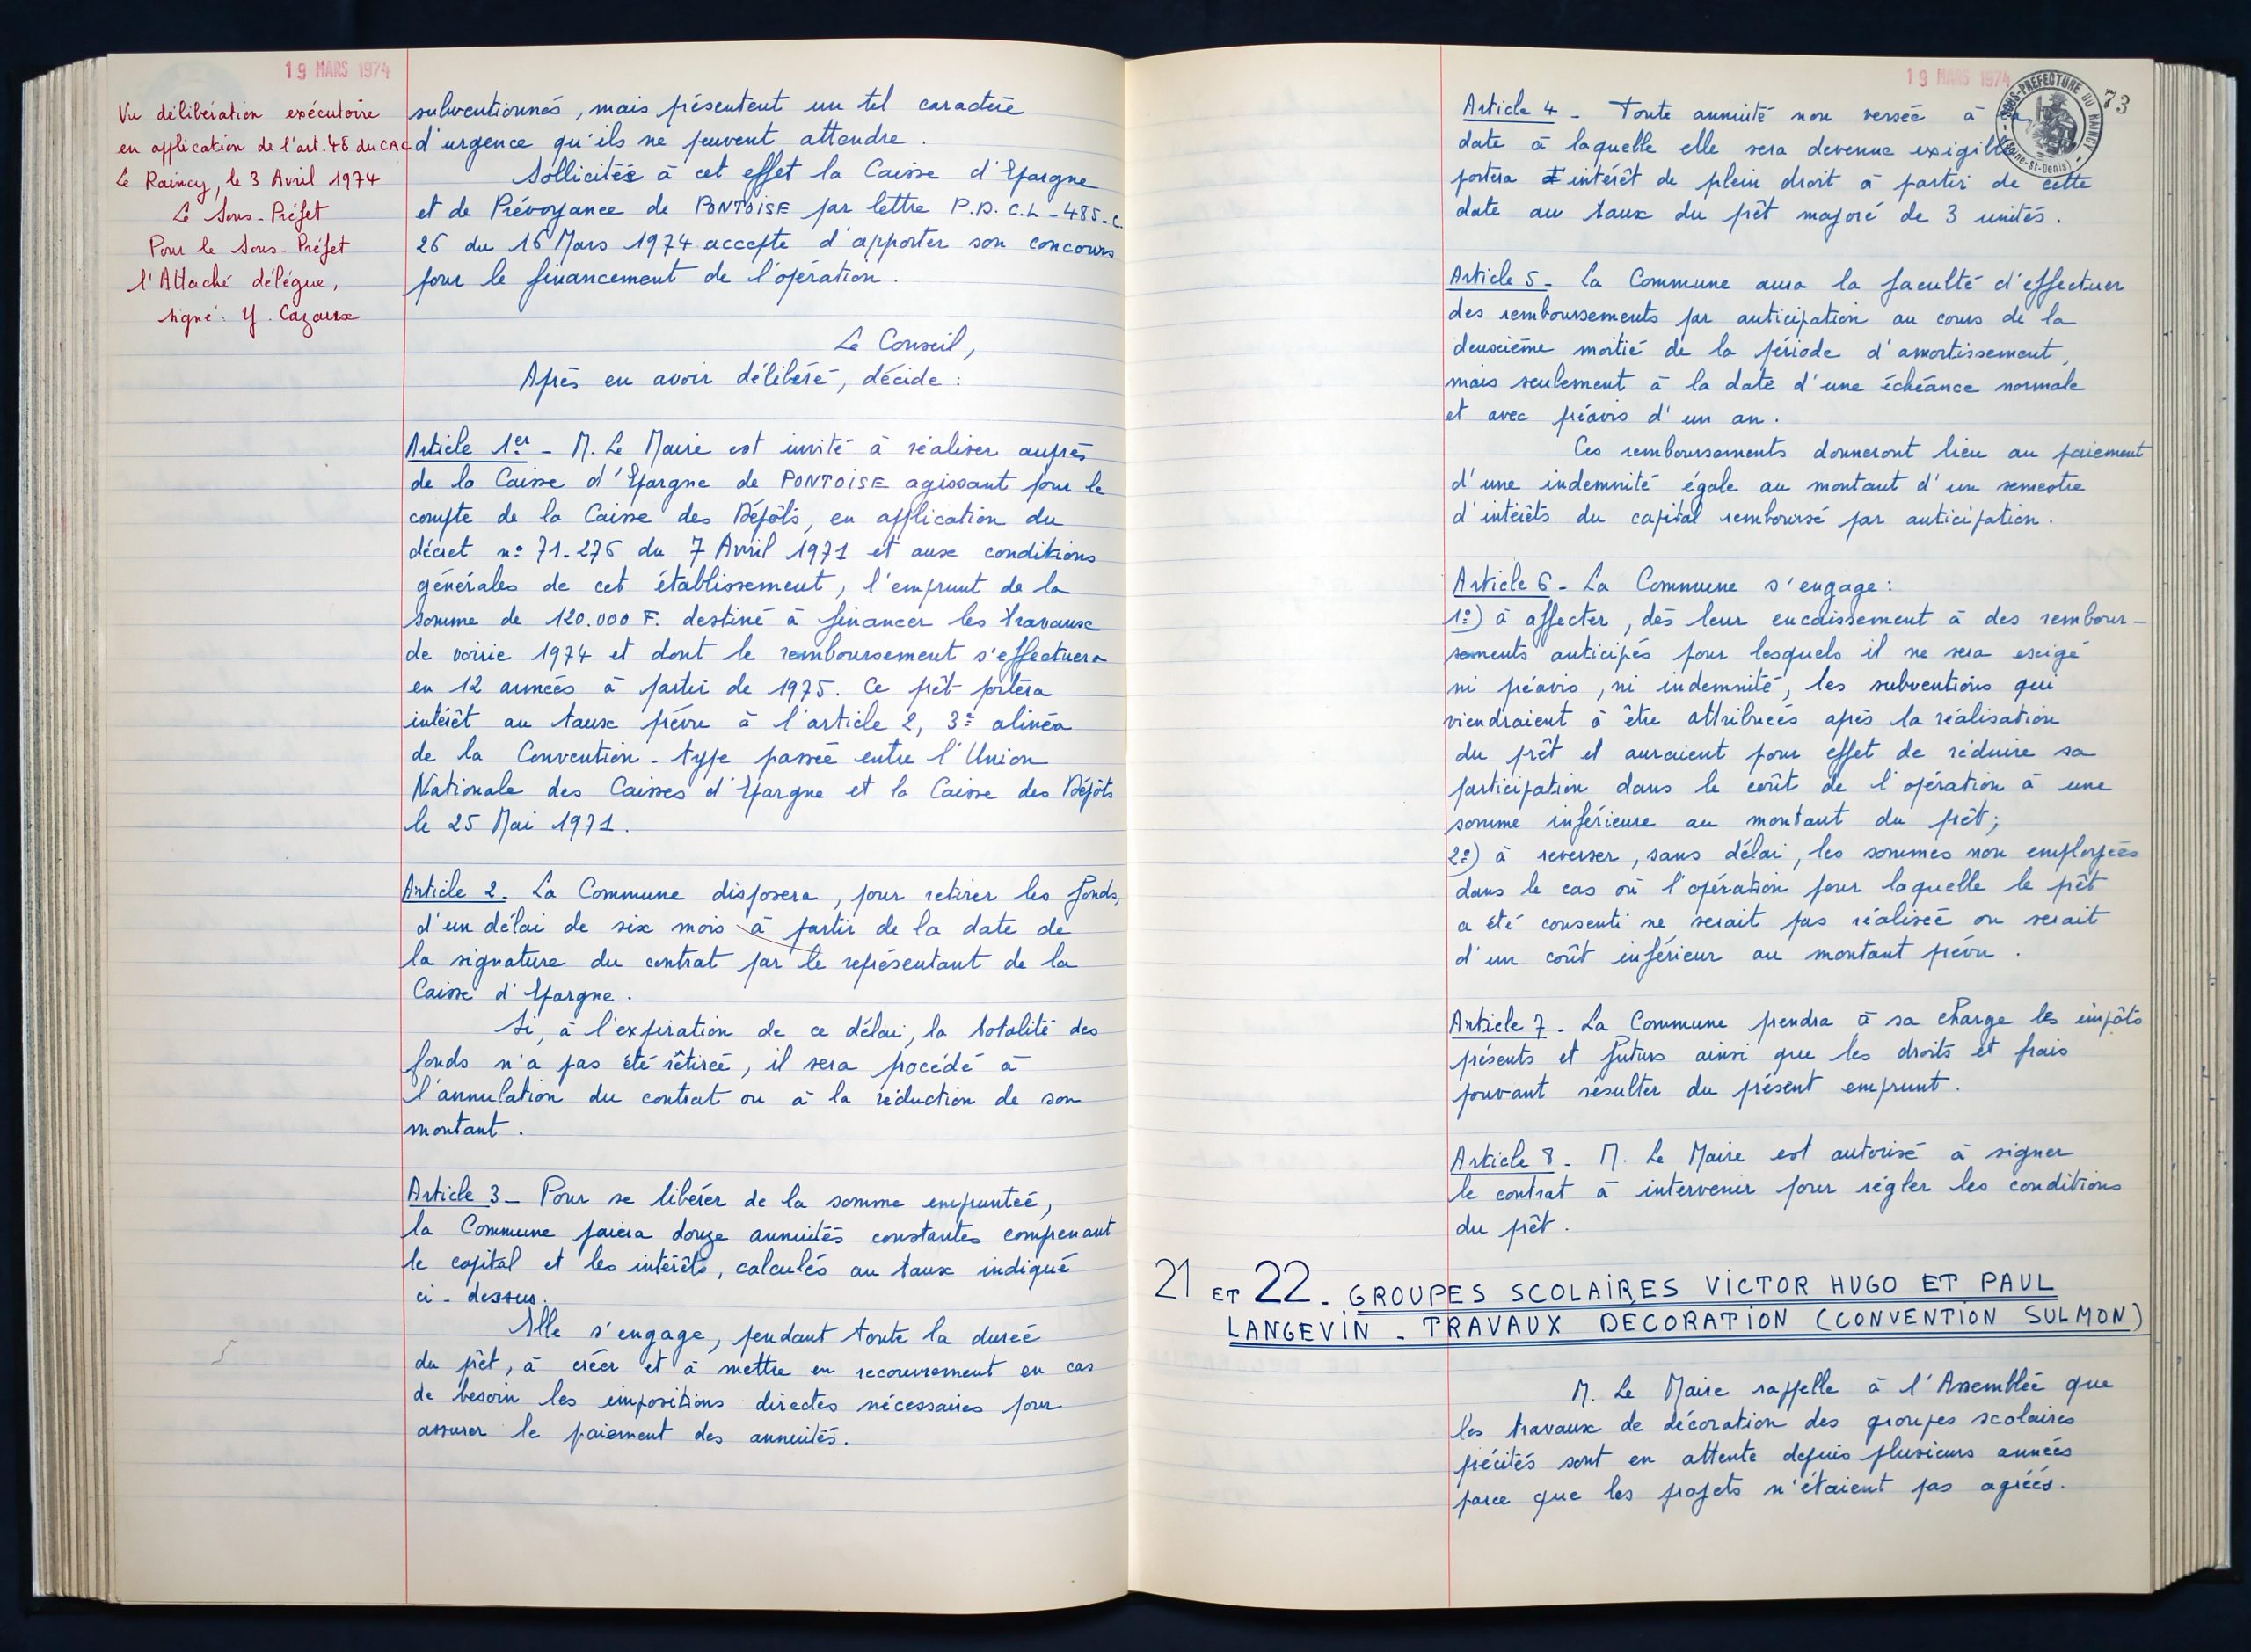 19 MARS 1974
Vu délibération exécutoire
en application de l'art. 46 du CAC
Le Raincy, le 3 Avril 1974
Le Sous-Préfet
Pour le Sous-Préfet
l'Attaché délégué,
signé: Y. Cazaux
subventionnés, mais présentent un tel caractère
d'urgence qu'ils ne peuvent attendre.
Sollicitée à cet effet la Caisse d'Epargne
et de Prévoyance de PONTOISE par lettre P.D.C.L - 485-C.
26 du 16 Mars 1974 accepte d'apporter son concours
pour le financement de l'opération.
Le Conseil,
Après en avoir délibéré, décide:
Article 1er - M. Le Maire est invité à réaliser auprès
de la Caisse d'Epargne de PONTOISE agissant pour le
compte de la Caisse des Dépôts, en application du
décret n° 71-276 du 7 Avril 1971 et aux conditions
générales de cet établissement, l'emprunt de la
somme de 120.000 F. destiné à financer les travaux
de voirie 1974 et dont le remboursement s'effectuera
en 12 années à partir de 1975. Ce prêt portera
intérêt au taux prévu à l'article 2, 3e alinéa
de la Convention-type passée entre l'Union
Nationale des Caisses d'Epargne et la Caisse des Dépôts
le 25 Mai 1971.
Article 2. La Commune disposera, pour retirer les fonds,
d'un délai de six mois à partir de la date de
la signature du contrat par le représentant de la
Caisse d'Epargne.
Si, à l'expiration de ce délai, la totalité des
fonds n'a pas été retirée, il sera procédé à
l'annulation du contrat ou à la réduction de son
montant.
Article 3 - Pour se libérer de la somme empruntée,
la Commune paiera douze annuités constantes comprenant
le capital et les intérêts, calculés au taux indiqué
ci-dessus.
Elle s'engage, pendant toute la durée
du prêt, à créer et à mettre en recouvrement en cas
de besoin les impositions directes nécessaires pour
assurer le paiement des annuités.
19 MARS 1974
SOUS-PREFECTURE DU RAINCY
(Seine-St-Denis)
73
Article 4 - Toute annuité non versée à la
date à laquelle elle sera devenue exigible
portera intérêt de plein droit à partir de cette
date au taux du prêt majoré de 3 unités.
Article 5 - La Commune aura la faculté d'effectuer
des remboursements par anticipation au cours de la
deuxième moitié de la période d'amortissement,
mais seulement à la date d'une échéance normale
et avec préavis d'un an.
Ces remboursements donneront lieu au paiement
d'une indemnité égale au montant d'un semestre
d'intérêts du capital remboursé par anticipation.
Article 6 - La Commune s'engage:
1°) à affecter, dès leur encaissement à des rembour-
sements anticipés pour lesquels il ne sera exigé
ni préavis, ni indemnité, les subventions qui
viendraient à être attribuées après la réalisation
du prêt et auraient pour effet de réduire sa
participation dans le coût de l'opération à une
somme inférieure au montant du prêt;
2°) à reverser, sans délai, les sommes non employées
dans le cas où l'opération pour laquelle le prêt
a été consenti ne serait pas réalisée ou serait
d'un coût inférieur au montant prévu.
Article 7 - La Commune prendra à sa charge les impôts
présents et futurs ainsi que les droits et frais
pouvant résulter du présent emprunt.
Article 8 - M. Le Maire est autorisé à signer
le contrat à intervenir pour régler les conditions
du prêt.
21 ET 22 - GROUPES SCOLAIRES VICTOR HUGO ET PAUL
LANGEVIN - TRAVAUX DÉCORATION (CONVENTION SULMON)
M. Le Maire rappelle à l'Assemblée que
les travaux de décoration des groupes scolaires
précités sont en attente depuis plusieurs années
parce que les projets n'étaient pas agréés.